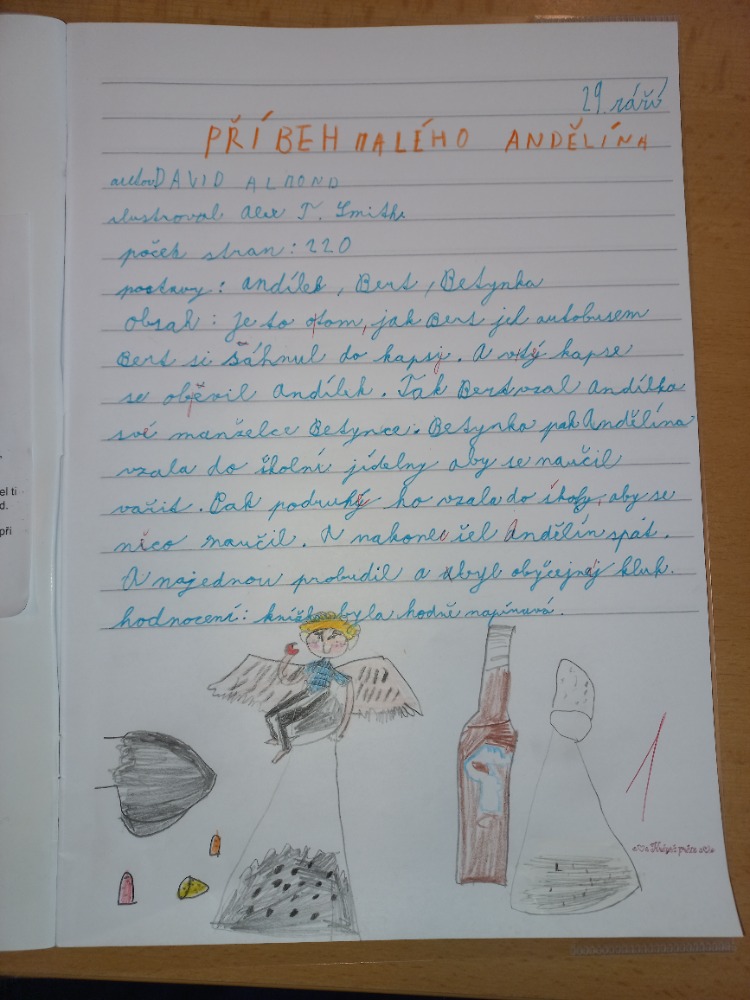 29. září
PŘÍBEH MALÉHO ANDĚLÍNA
autor DAVID ALMOND
ilustroval Alex T. Smith
poček stran: 220
postavy: andílek, Bert, Betynka
obsah: Je to o tom, jak Bert jel autobusem
Bert si šáhnul do kapsy. A v té kapse
se objevil andílek. Tak Bert vzal andílka
své manželce Betynce. Betynka pak Andělína
vzala do školní jídelny aby se naučil
vařit. Pak podruhý ho vzala do školy, aby se
něco naučil. A nakonec šel Andělín spát.
A najednou probudil a byl obyčejný kluk.
hodnocení: knížka byla hodně napínavá.
1
el ti
d.
při